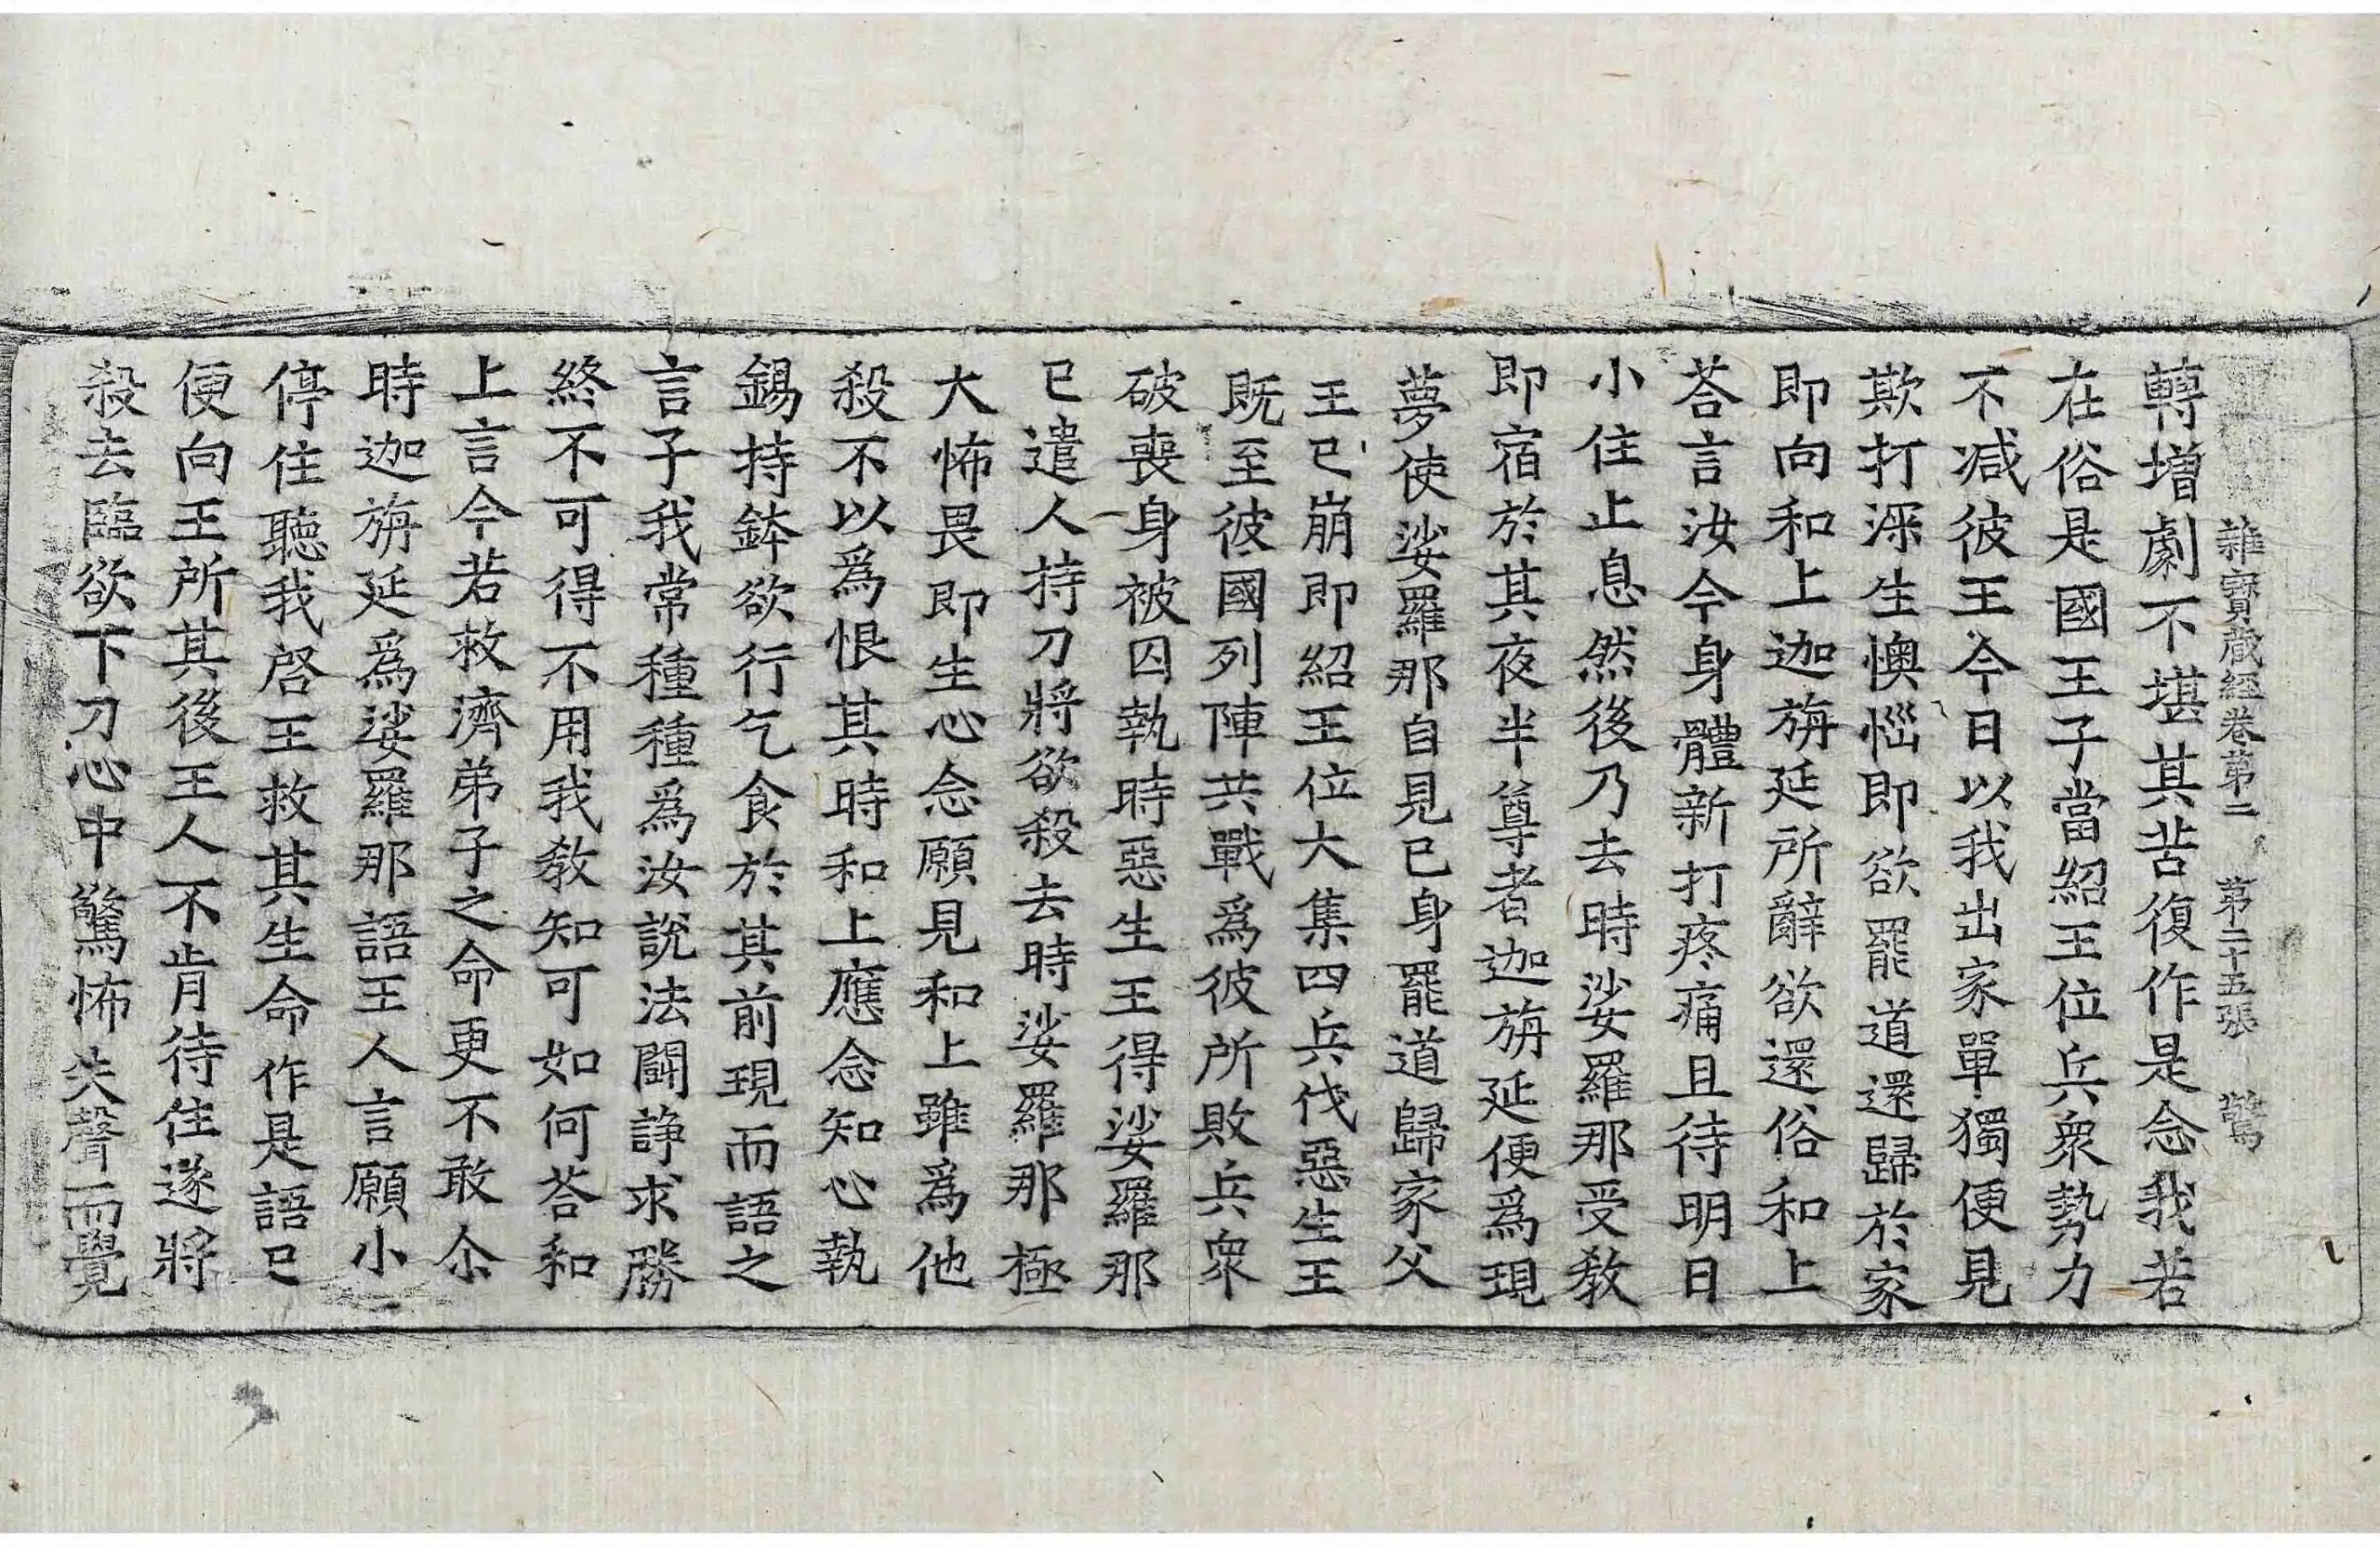 雜寶蔵經卷第二 第二十五張 驚
轉增劇不堪其苦復作是念我若
在俗是國王子當紹王位兵衆勢力
不減彼王今日以我出家單獨便見
欺打深生懊惱即欲罷道還歸於家
即向和上迦旃延所辭欲還俗和上
荅言汝今身體新打疼痛且待明日
小住止息然後乃去時娑羅那受教
即宿於其夜半尊者迦旃延便爲現
夢使娑羅那自見已身罷道歸家父
王已崩即紹王位大集四兵伐惡生王
既至彼國列陣共戰爲彼所敗兵衆
破喪身被囚執時惡生王得娑羅那
已遣人持刀將欲殺去時娑羅那極
大怖畏即生心念願見和上雖爲他
殺不以爲恨其時和上應念知心執
錫持鉢欲行乞食於其前現而語之
言子我常種種爲汝說法鬪諍求勝
終不可得不用我教知可如何荅和
上言今若救濟弟子之命更不敢尒
時迦旃延爲娑羅那語王人言願小
停住聽我啓王救其生命作是語已
便向王所其後王人不肯待住遂將
殺去臨欲下刀心中驚怖失聲而覺